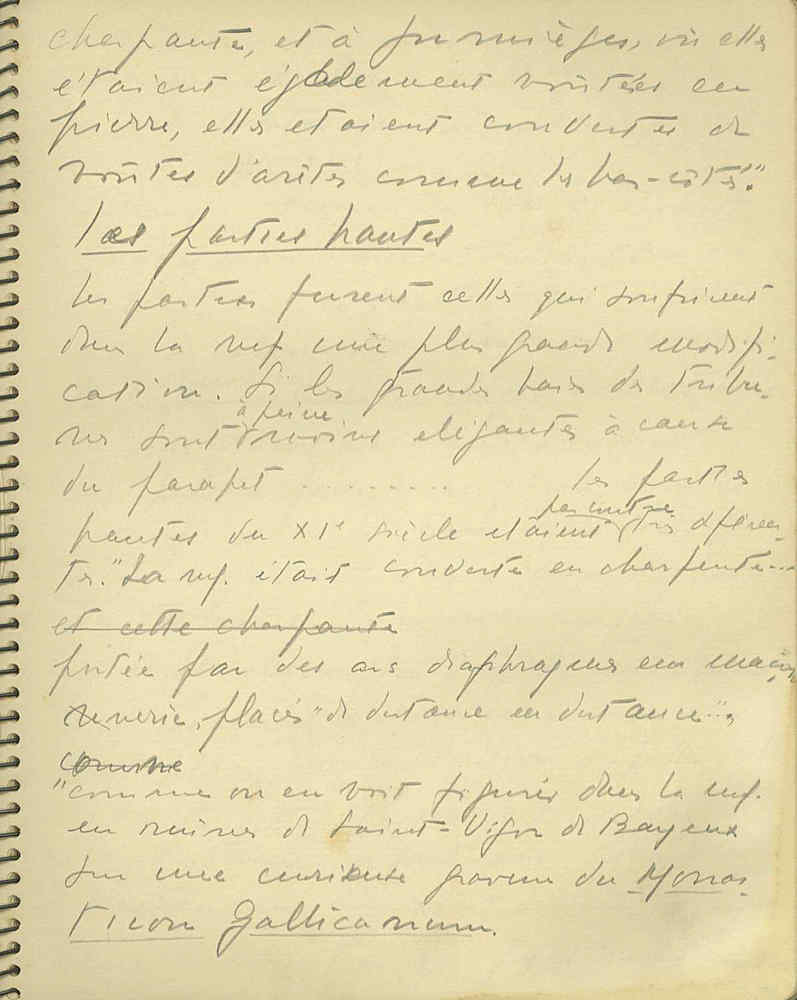 charpente, et à Jumièges, où elles
étaient également voûtées en
pierre, elles etaient couvertes de
voûtes d'arêtes comme les bas-côtés."
Les parties hautes
Les parties furent celles qui souffrirent
dans la nef une plus grande modifi-
cation. Si les grandes baies des tribu-
nes sont à peine moins elégantes à cause
du parapet ......... les parties
hautes du XIe siècle etaient par contre très diféren-
tes. "La nef. était couverte en charpente...
et cette charpente
portée par des arcs diaphragmes en maçon-
nerie, placés "de distance en distance"..,
comme
"comme on en voit figurés dans la nef.
en ruines de Saint-Vigor de Bayeux
sur une curieuse gravure du Monas-
ticon Gallicanum.